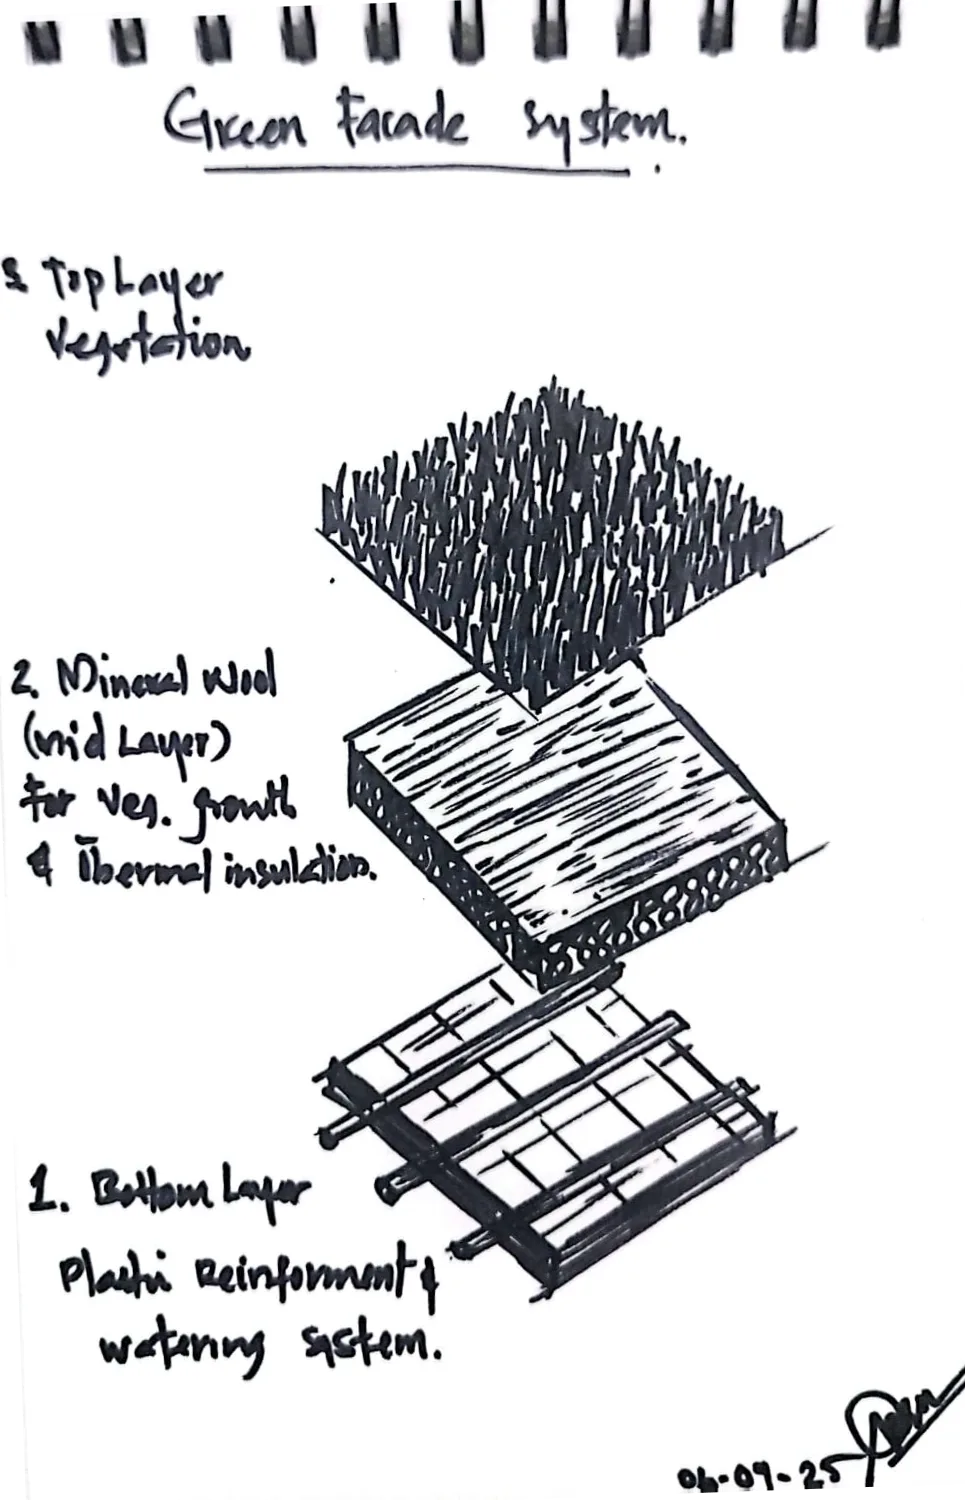 Green Facade System.
3 Top Layer
Vegetation
2. Mineral Wool
(mid Layer)
for veg. growth
& Thermal insulation.
1. Bottom Layer
Plastic Reinforment &
watering system.
06-09-25